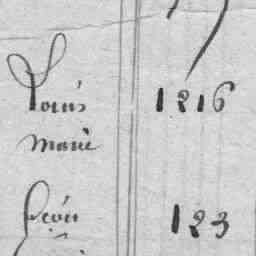 Louis 1216
Marie
Léon 123